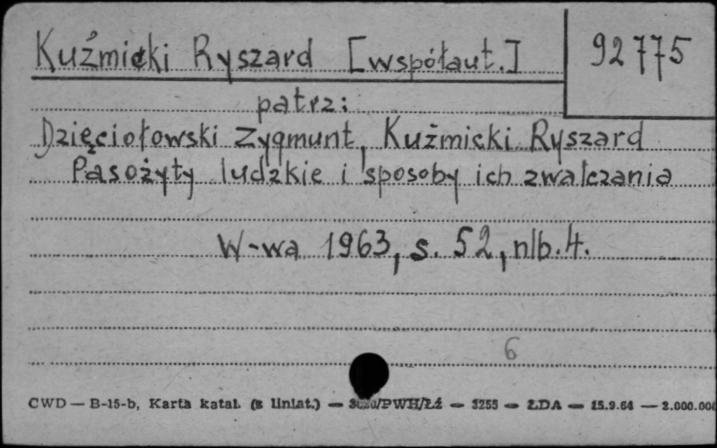 Kuźmicki Ryszard [współaut.]
92775
patrz:
Dzięciołowski Zygmunt, Kuźmicki Ryszard
Pasożyty ludzkie i sposoby ich zwalczania
W-wa 1963, s. 52, nlb. 4.
6
CWD — B-15-b, Karta katal. (z liniat.) — /PWH/Łź — 3255 — ŁDA — 15.9.64 — 2.000.000